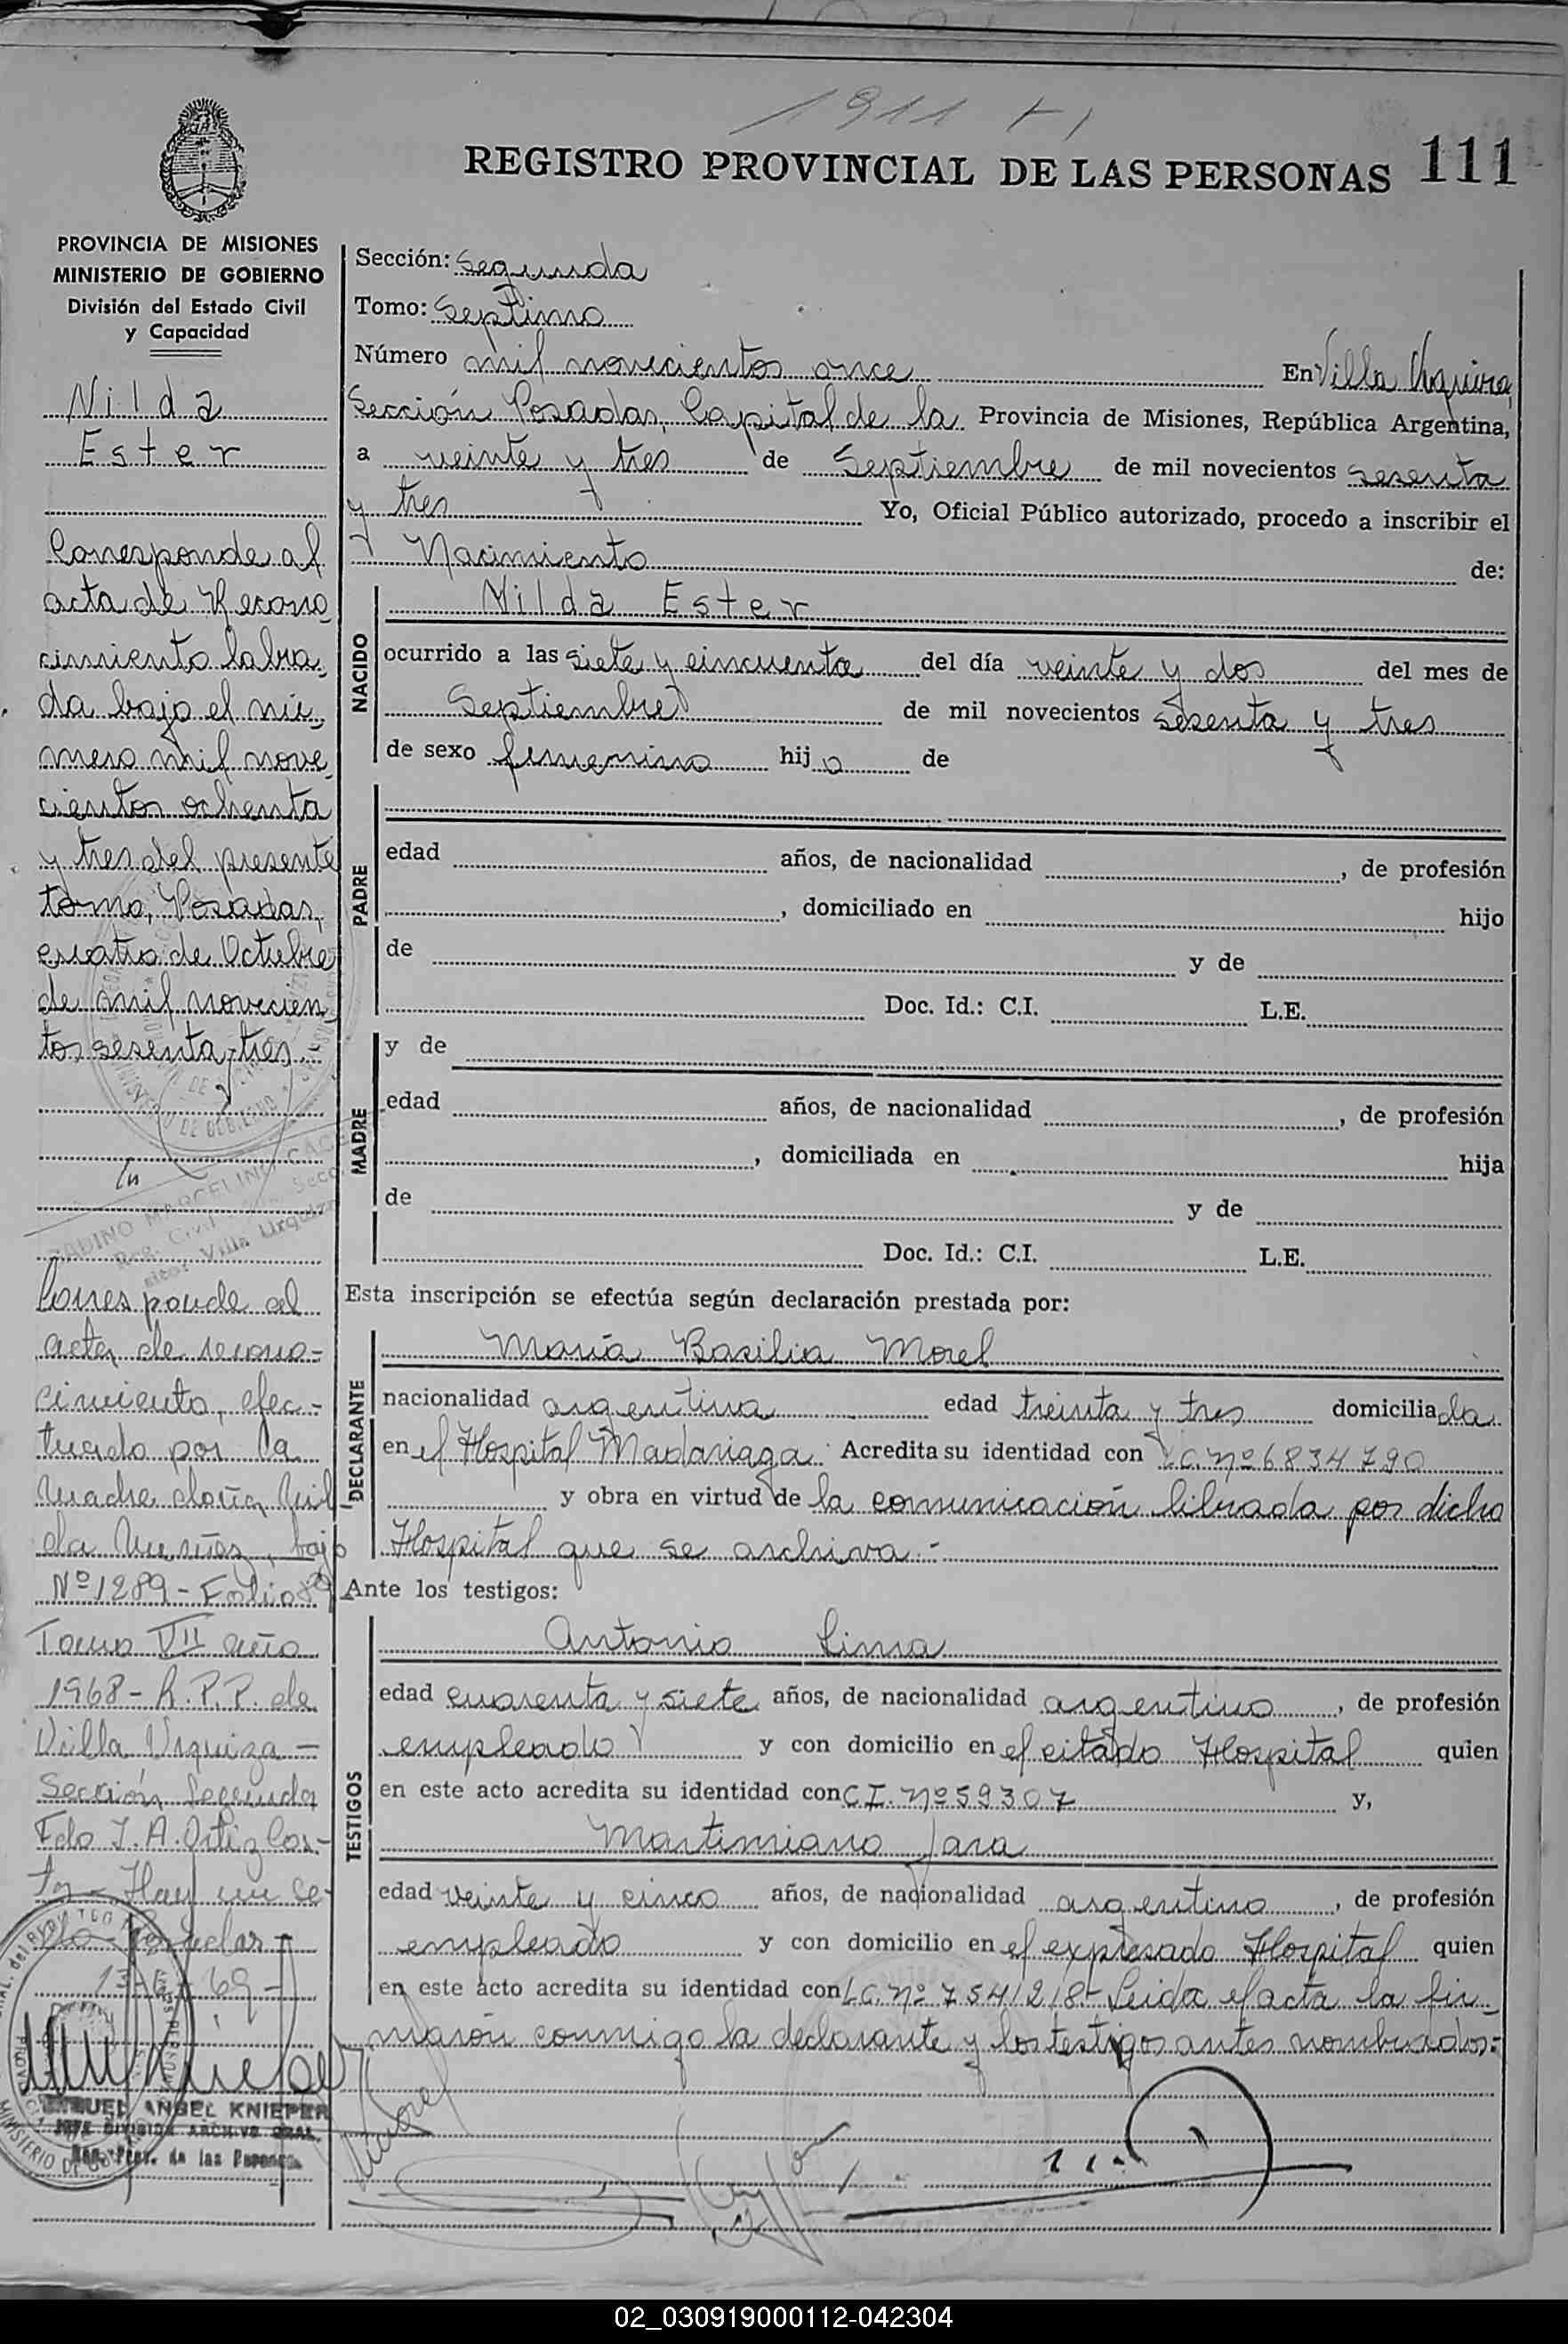 1911
REGISTRO PROVINCIAL DE LAS PERSONAS 111
PROVINCIA DE MISIONES
MINISTERIO DE GOBIERNO
División del Estado Civil
y Capacidad
Nilda
Ester
Corresponde al
acta de Recono
cimiento labra
da bajo el nú
mero mil nove
cientos ochenta
y tres del presente
tomo, Posadas,
cuatro de Octubre
de mil novecien
tos sesenta y tres.
MINISTERIO DE GOBIERNO
SABINO MARCELINO
Reg. Civil Secc.
Villa Urquiza
Corresponde al
acta de recono-
cimiento, efec-
tuado por la
Madre doña Nil
da Muniez, bajo
Nº 1289 - Folio 89
Tomo VII año
1968 - R.P.P. de
Villa Urquiza -
Sección Segunda
Fdo J. A. Ortiz Cos-
ta - Hay un se-
llo - Posadas
69-
MIGUEL ANGEL KNIEPER
JEFE DIVISION ARCHIVO GRAL.
Reg. Prov. de las Personas
Sección: Segunda
Tomo: Septimo
Número mil novecientos once En Villa Urquiza,
Sección Posadas, Capital de la Provincia de Misiones, República Argentina,
a veinte y tres de Septiembre de mil novecientos sesenta
y tres Yo, Oficial Público autorizado, procedo a inscribir el
Nacimiento de:
NACIDO
Nilda Ester
ocurrido a las siete y cincuenta del día veinte y dos del mes de
Septiembre de mil novecientos sesenta y tres
de sexo femenino hij a de
PADRE
edad años, de nacionalidad , de profesión
, domiciliado en hijo
de y de
Doc. Id.: C.I. L.E.
MADRE
y de
edad años, de nacionalidad , de profesión
, domiciliada en hija
de y de
Doc. Id.: C.I. L.E.
Esta inscripción se efectúa según declaración prestada por:
DECLARANTE
María Basilia Morel
nacionalidad argentina edad treinta y tres domicilia da
en el Hospital Madariaga Acredita su identidad con L.C. Nº 6834790
y obra en virtud de la comunicación librada por dicho
Hospital que se archiva.-
Ante los testigos:
TESTIGOS
Antonio Lima
edad cuarenta y siete años, de nacionalidad argentino , de profesión
empleado y con domicilio en el citado Hospital quien
en este acto acredita su identidad con C.I. Nº 59307 y,
Martimiano Jara
edad veinte y cinco años, de nacionalidad argentino , de profesión
empleado y con domicilio en el expresado Hospital quien
en este acto acredita su identidad con L.C. Nº 7541218- Leida el acta la fir-
maron conmigo la declarante y los testigos antes nombrados:-
Morel
02_030919000112-042304